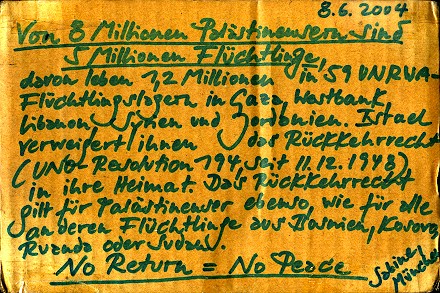 8.6.2004
Von 8 Millionen Palästinensern sind
5 Millionen Flüchtlinge,
davon leben 1,2 Millionen in 59 UNRWA-
Flüchtlingslagern in Gaza, Westbank,
Libanon, Syrien und Jordanien. Israel
verweigert ihnen das Rückkehrrecht
(UNO-Resolution 194, seit 11.12.1948)
in ihre Heimat. Das Rückkehrrecht
gilt für Palästinenser ebenso, wie für alle
anderen Flüchtlinge aus Bosnien, Kosovo,
Ruanda oder Sudan.
No Return = No Peace
Sabine,
München